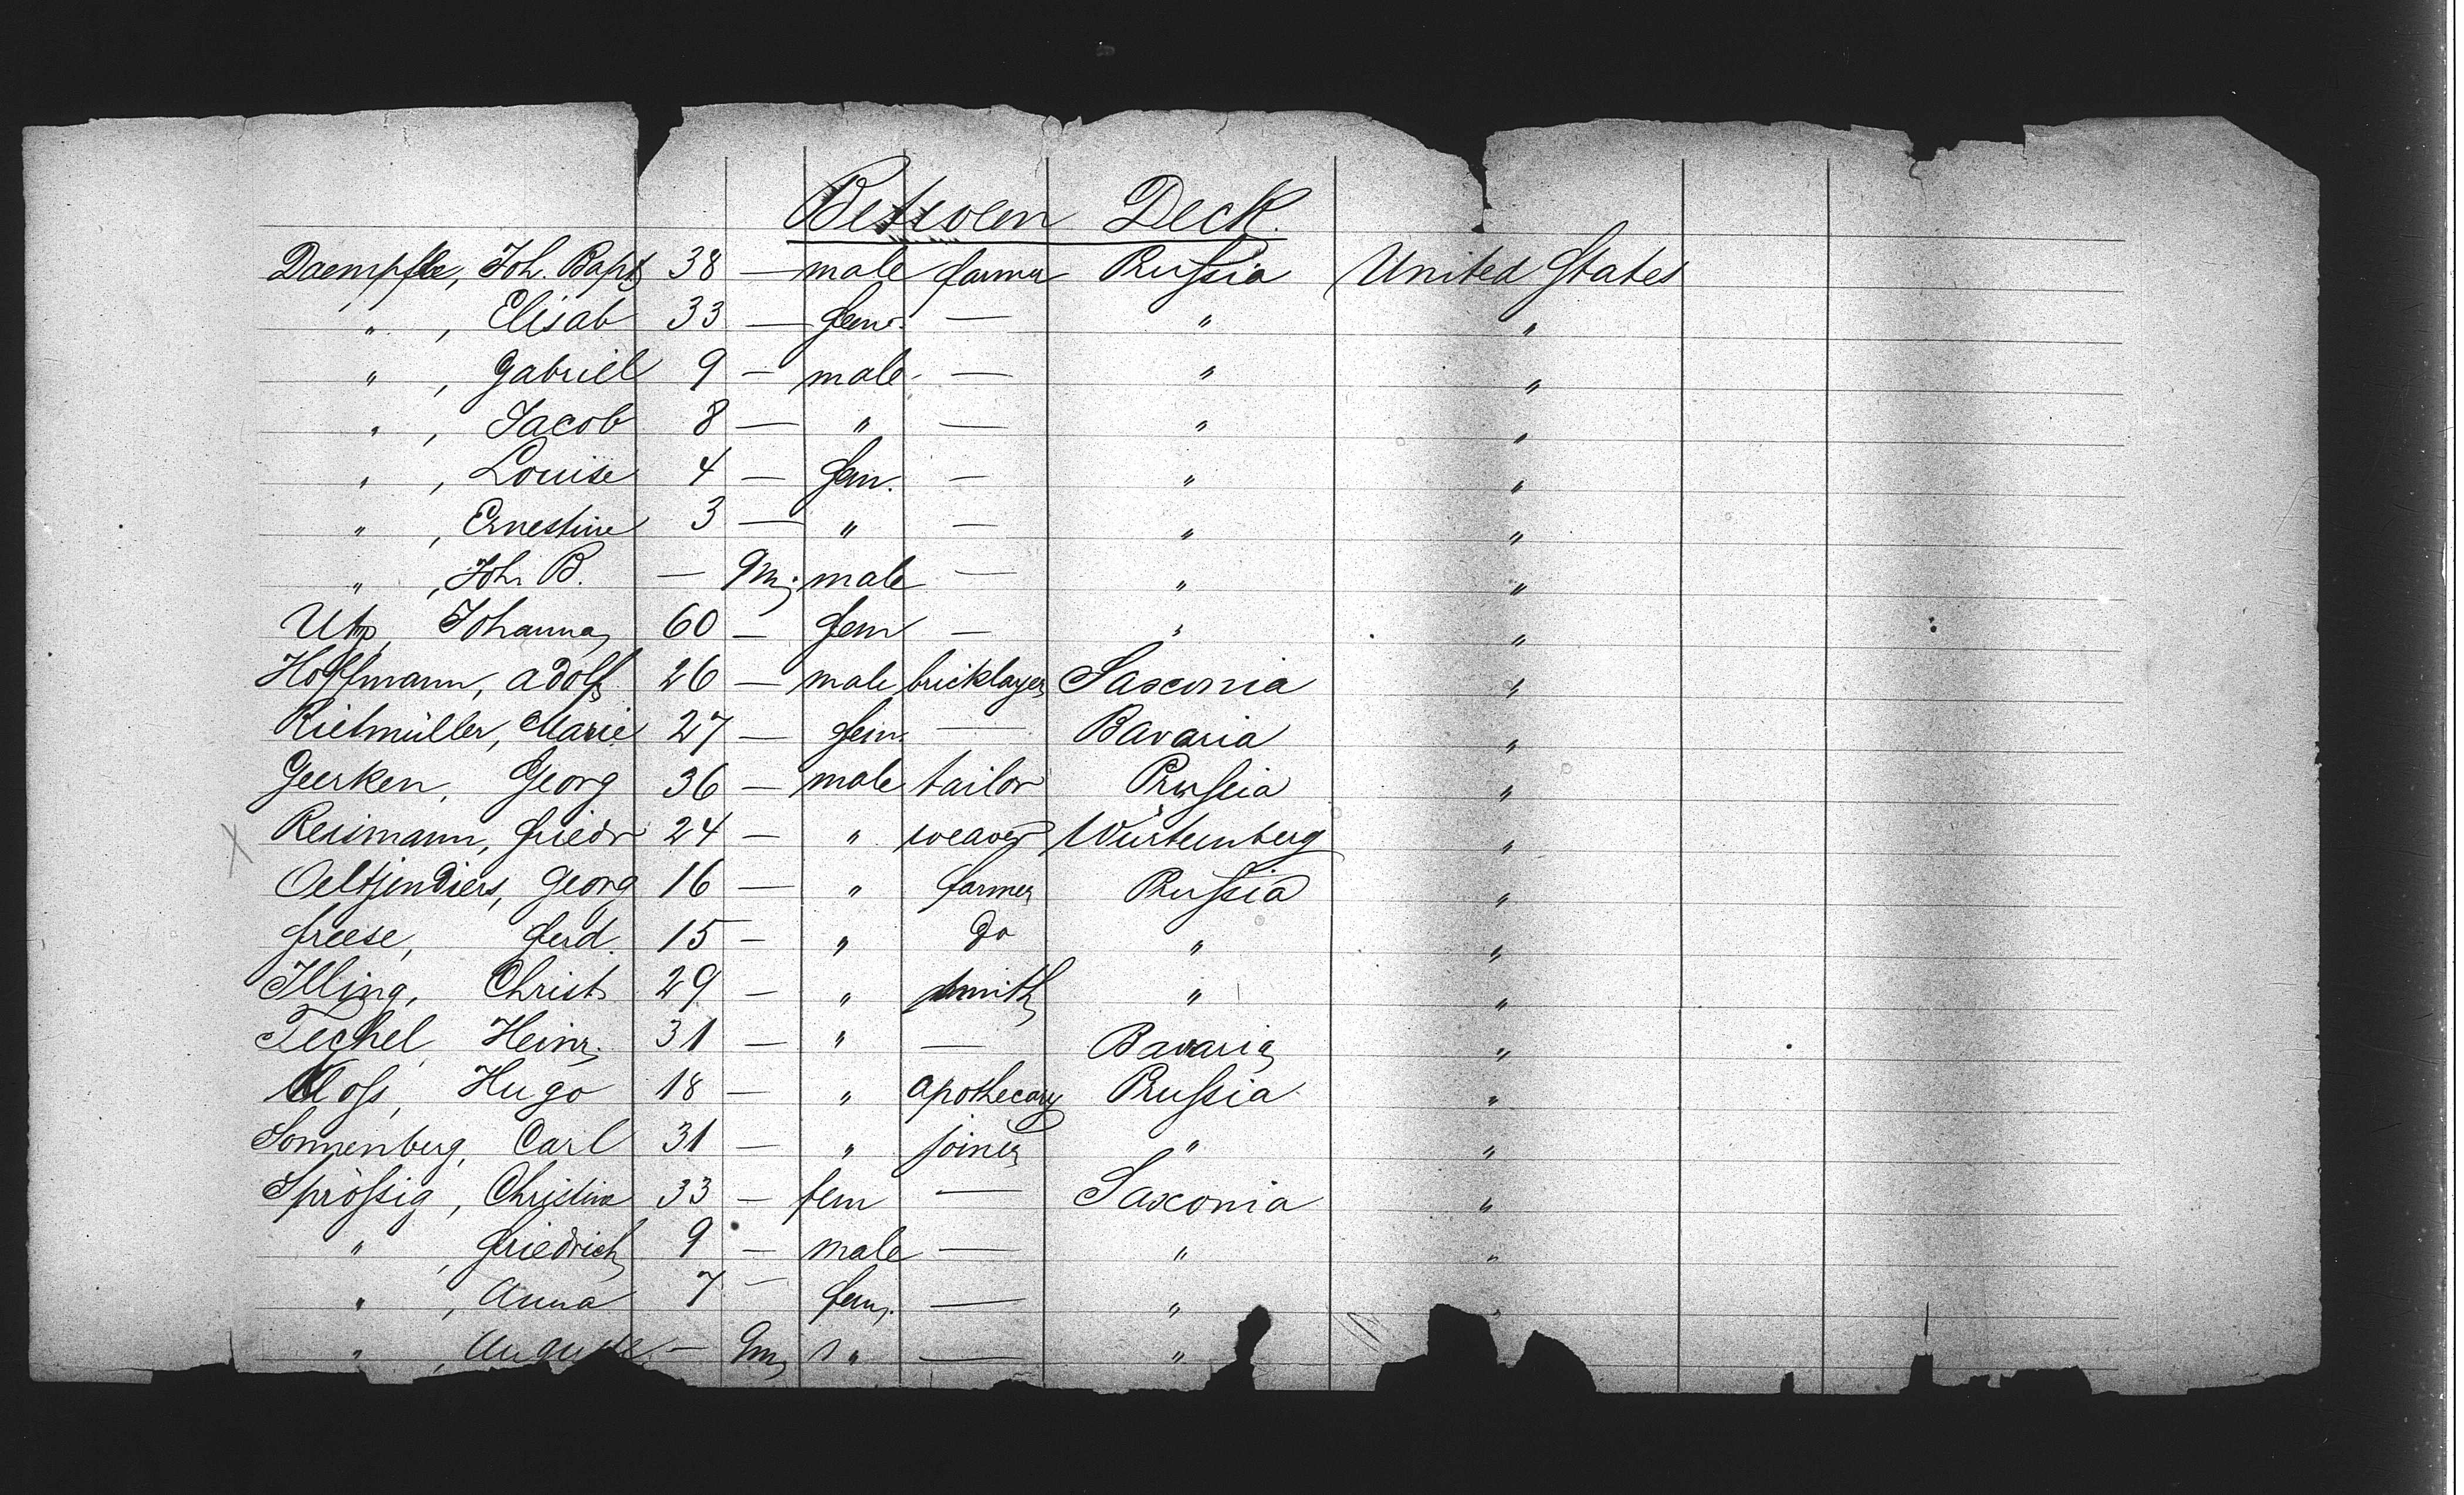 Between Deck.
Daempfle, Joh. Bapt 38 — male farmer Russia United States
" , Elisab 33 — fem. — " "
" , Gabriel 9 — male — " "
" , Jacob 8 — " — " "
" , Louise 4 — fem. — " "
" , Ernestine 3 — " — " "
" , Joh B. — 9m. male — " "
Utz, Johanna 60 — fem — " "
Hoffmann, Adolf 26 — male bricklayer Saxonia "
Rietmüller, Marie 27 — fem. — Bavaria "
Geerken, Georg 36 — male tailor Prussia "
X Reisimann, Friedr 24 — " weaver Würtemberg "
Oeltjendiers, Georg 16 — " farmer Prussia "
Freese, Ferd. 15 — " do " "
Illing, Christ. 29 — " smith " "
Techel, Heinr. 31 — " — Bavaria "
Kloss, Hugo 18 — " apothecary Prussia "
Sonnenberg, Carl 31 — " joiner " "
Sprössig, Christine 33 — fem — Saxonia "
" , Friedrich 9 — male — " "
" , Anna 7 — fem. — " "
" , Auguste — 9m " — "